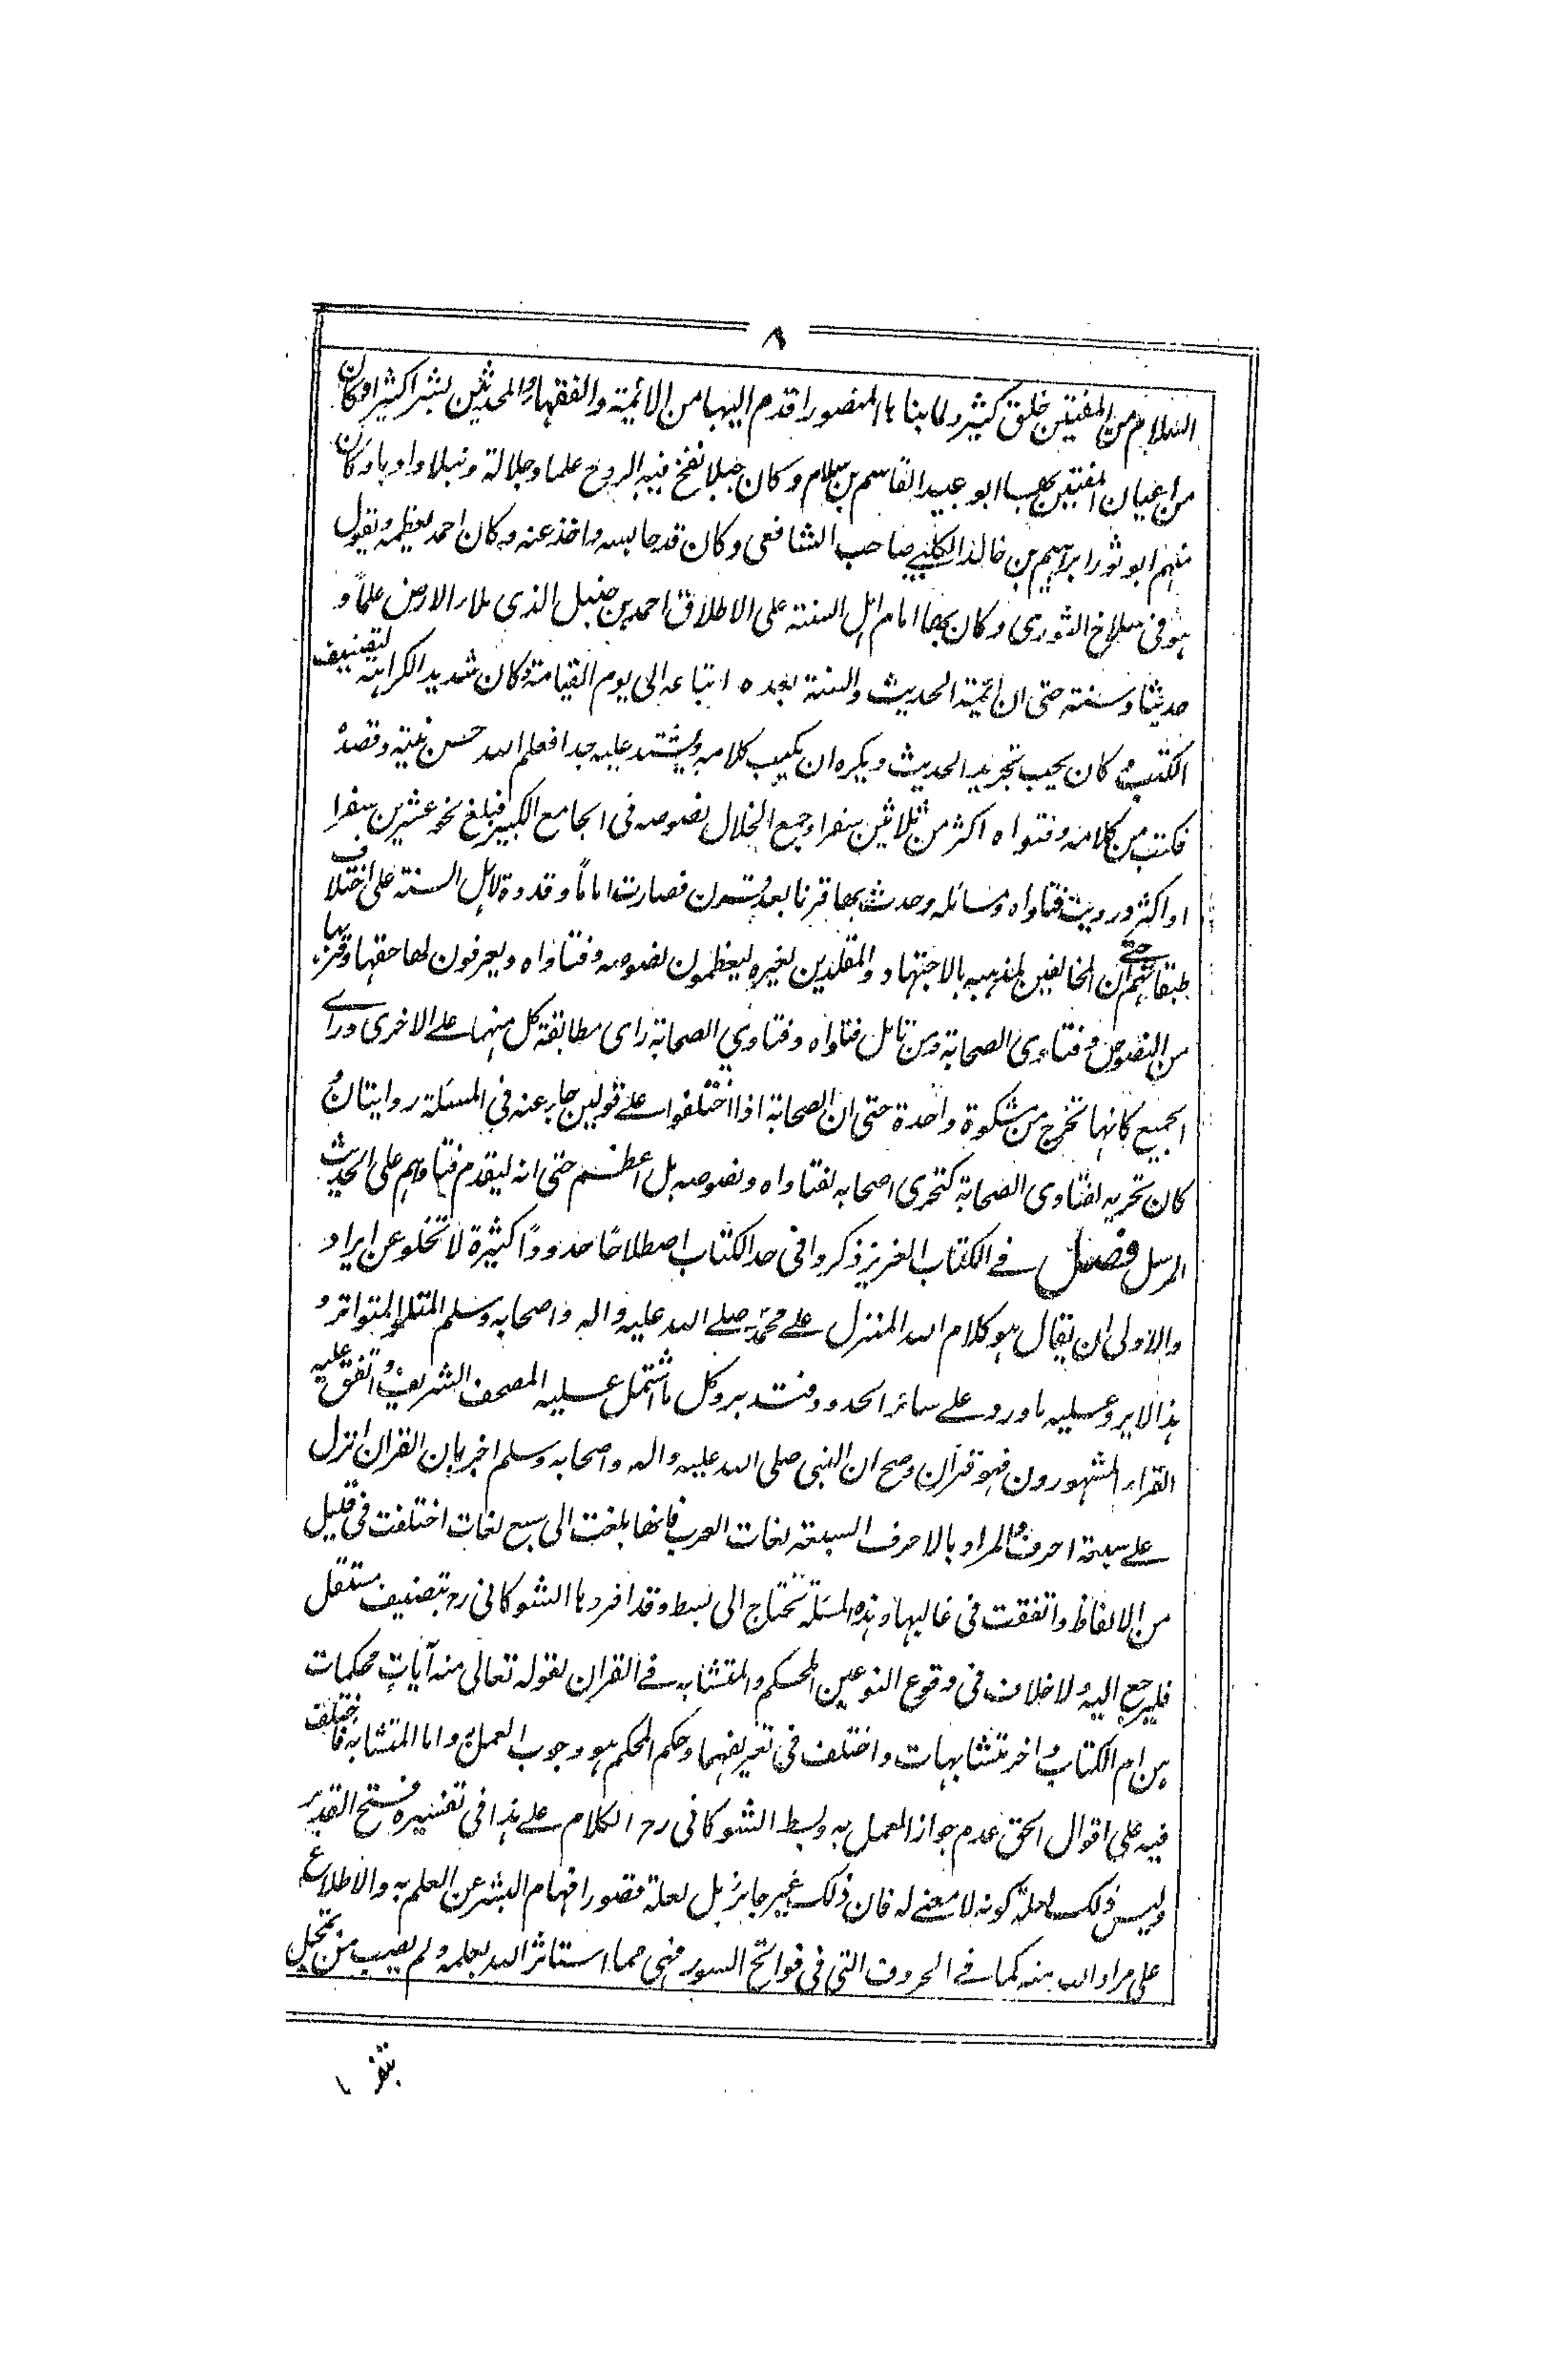 ٨
السلام من المفتين خلق كثير ولما بناها المنصور اقدم اليها من الائمة والفقهاء والمحدثين بشرا كثيرا وكان
من اعيان المفتين بها ابو عبيد القاسم بن سلام وكان جبلا نفخ فيه الروح علما وجلالة ونبلا وادبا وكان
منهم ابو ثور ابراهيم بن خالد الكلبي صاحب الشافعي وكان قد جالسه واخذ عنه وكان احمد يعظمه ويقول
هو في سلاخ الثوري وكان بها امام اهل السنة على الاطلاق احمد بن حنبل الذي ملأ الارض علمًا و
حديثا وسنة حتى ان ائمة الحديث والسنة بعده اتباعه الى يوم القيامة وكان شديد الكراهة لتصنيف
الكتب كان يحب تجريد الحديث ويكره ان يكتب كلامه ويشتد عليه جدا فعلم الله حسن نيته وقصده
فكتب من كلامه وفتواه اكثر من ثلاثين سفرا وجمع الخلال نصوصه في الجامع الكبير فبلغ نحو عشرين سفرا
او اكثر ورويت فتاواه ومسائله وحدث بها قرنا بعد قرن فصارت امامًا وقدوة لاهل السنة على اختلاف
طبقاتهم حتى ان المخالفين لمذهبه بالاجتهاد والمقلدين لغيره ليعظمون نصوصه وفتاواه ويعرفون لها حقها وقربها
من النصوص وفتاوى الصحابة ومن تامل فتاواه وفتاوي الصحابة راى مطابقة كل منهما على الاخرى وراى
الجميع كانها تخرج من مشكوة واحدة حتى ان الصحابة اذا اختلفوا على قولين جاء عنه في المسئلة روايتان و
كان تحريه لفتاوى الصحابة كتحرى اصحابه لفتاواه ونصوصه بل اعظم حتى انه ليقدم فتاويهم على الحديث
المرسل فصل في الكتاب العزيز ذكروا في حد الكتاب اصطلاحًا حدودًا كثيرة لا تخلو عن ايراد
والاولى ان يقال هو كلام الله المنزل على محمد صلى الله عليه واله واصحابه وسلم المتلو المتواتر و
هذا لا يرد عليه ما ورد على سائر الحدود فتدبر وكل ما اشتمل عليه المصحف الشريف واتفق عليه
القراء المشهورون فهو قرآن وصح ان النبي صلى الله عليه واله واصحابه وسلم اخبر بان القران انزل
على سبعة احرف والمراد بالاحرف السبعة لغات العرب فانها بلغت الى سبع لغات اختلفت في قليل
من الالفاظ واتفقت في غالبها وهذه المسئلة تحتاج الى بسط وقد افردها الشوكاني رح بتصنيف مستقل
فليرجع اليه ولا خلاف في وقوع النوعين المحكم والمتشابه في القران لقوله تعالى منه آيات محكمات
هن ام الكتاب واخر متشابهات واختلف في تعريفهما وحكم المحكم هو وجوب العمل به واما المتشابه فاختلف
فيه على اقوال الحق عدم جواز العمل به وبسط الشوكاني رح الكلام على هذا في تفسيره فتح القدير
وليس ذلك لعلة كونه لا معنى له فان ذلك غير جائز بل لعلة قصور افهام البشر عن العلم به والاطلاع
على مراد الله منه كما في الحروف التي في فواتح السور فهي مما استاثر الله بعلمه ولم يصب من تحمل